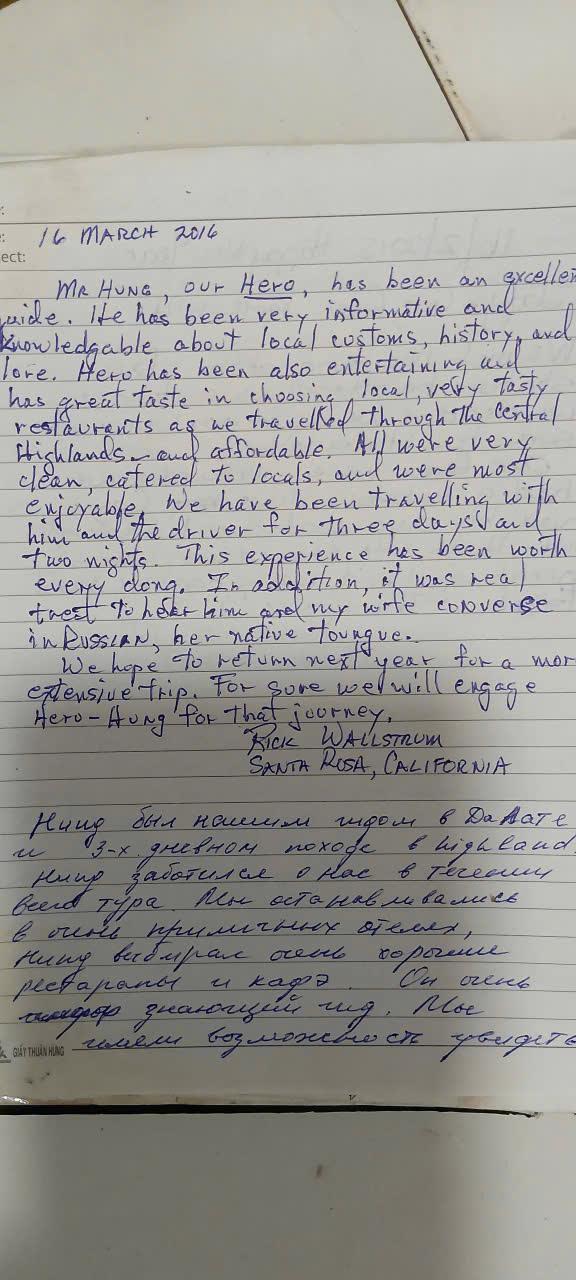 16 MARCH 2016
ect:
MR HUNG, our Hero, has been an excellen
uide. He has been very informative and
knowledgable about local customs, history, and
lore. Hero has been also entertaining and
has great taste in choosing local, very tasty
restaurants as we travelled through the Central
Highlands - and affordable. All were very
clean, catered to locals, and were most
enjoyable. We have been travelling with
him and the driver for three days and
two nights. This experience has been worth
every dong. In addition, it was real
treet to hear him and my wife converse
in Russian, her native toungue.
We hope to return next year for a mor
extensive trip. For sure we will engage
Hero-Hung for that journey.
RICK WALLSTRUM
SANTA ROSA, CALIFORNIA
Нинд был нашим гидом в Далате
и 3-х дневном походе в highland
Нинд заботился о нас в течении
всего тура. Мы останавливались
в очень приличных отелях,
Нинд выбирал очень хорошие
рестараны и кафэ. Он очень
знающий гид. Мы
имели возможность увидеть
GIẤY THUẬN HƯNG